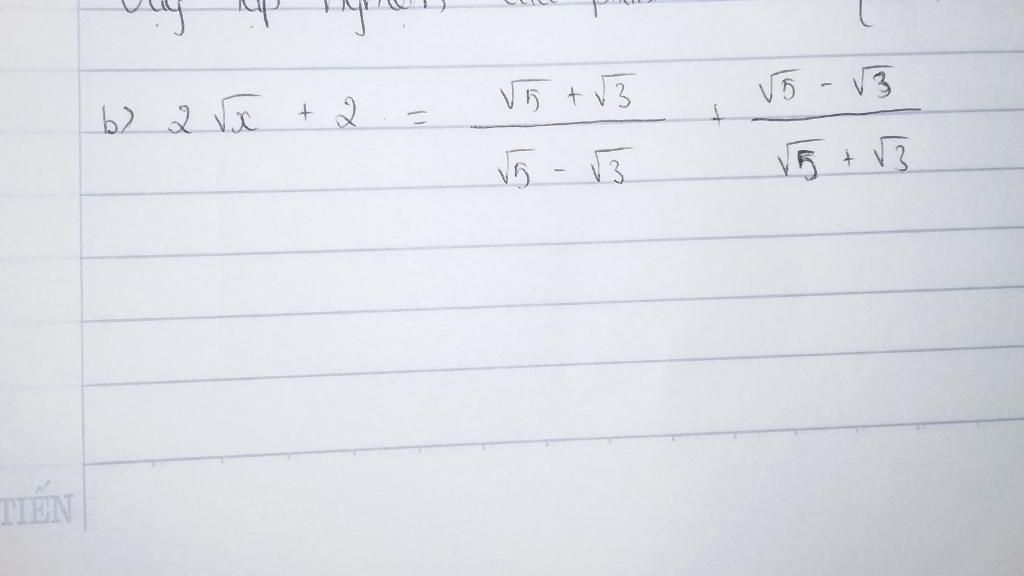 b) 2√x + 2 = (√5 + √3)/(√5 - √3) + (√5 - √3)/(√5 + √3)
TIẾN